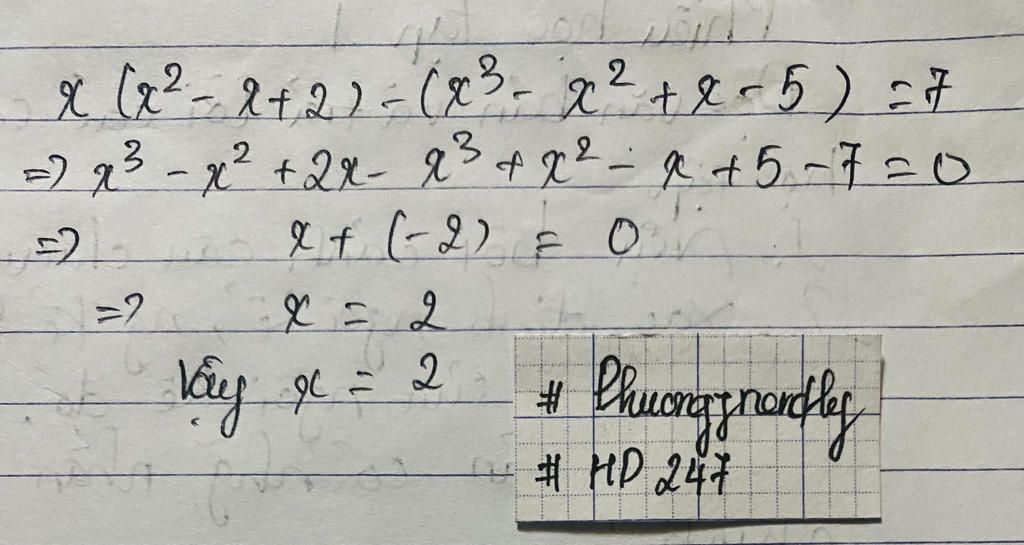 x (x² - x + 2) - (x³ - x² + x - 5) = 7
=> x³ - x² + 2x - x³ + x² - x + 5 - 7 = 0
=> x + (-2) = 0
=> x = 2
Vậy x = 2
# Phuonggnondley
# HD 247